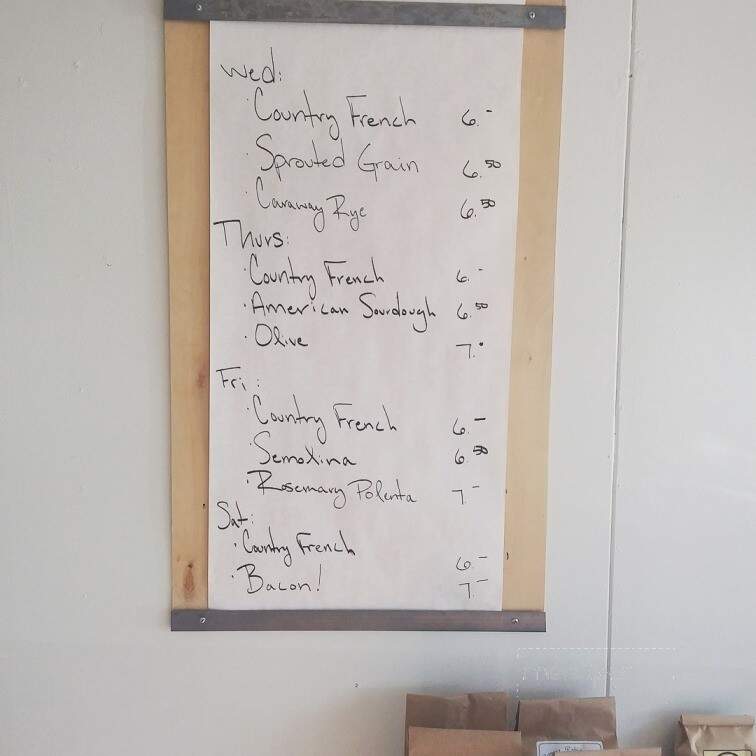 Wed:
· Country French 6.-
· Sprouted Grain 6.50
· Caraway Rye 6.50
Thurs:
· Country French 6.-
· American Sourdough 6.50
· Olive 7.-
Fri:
· Country French 6.-
· Semolina 6.50
· Rosemary Polenta 7-
Sat:
· Country French 6.-
· Bacon! 7.-